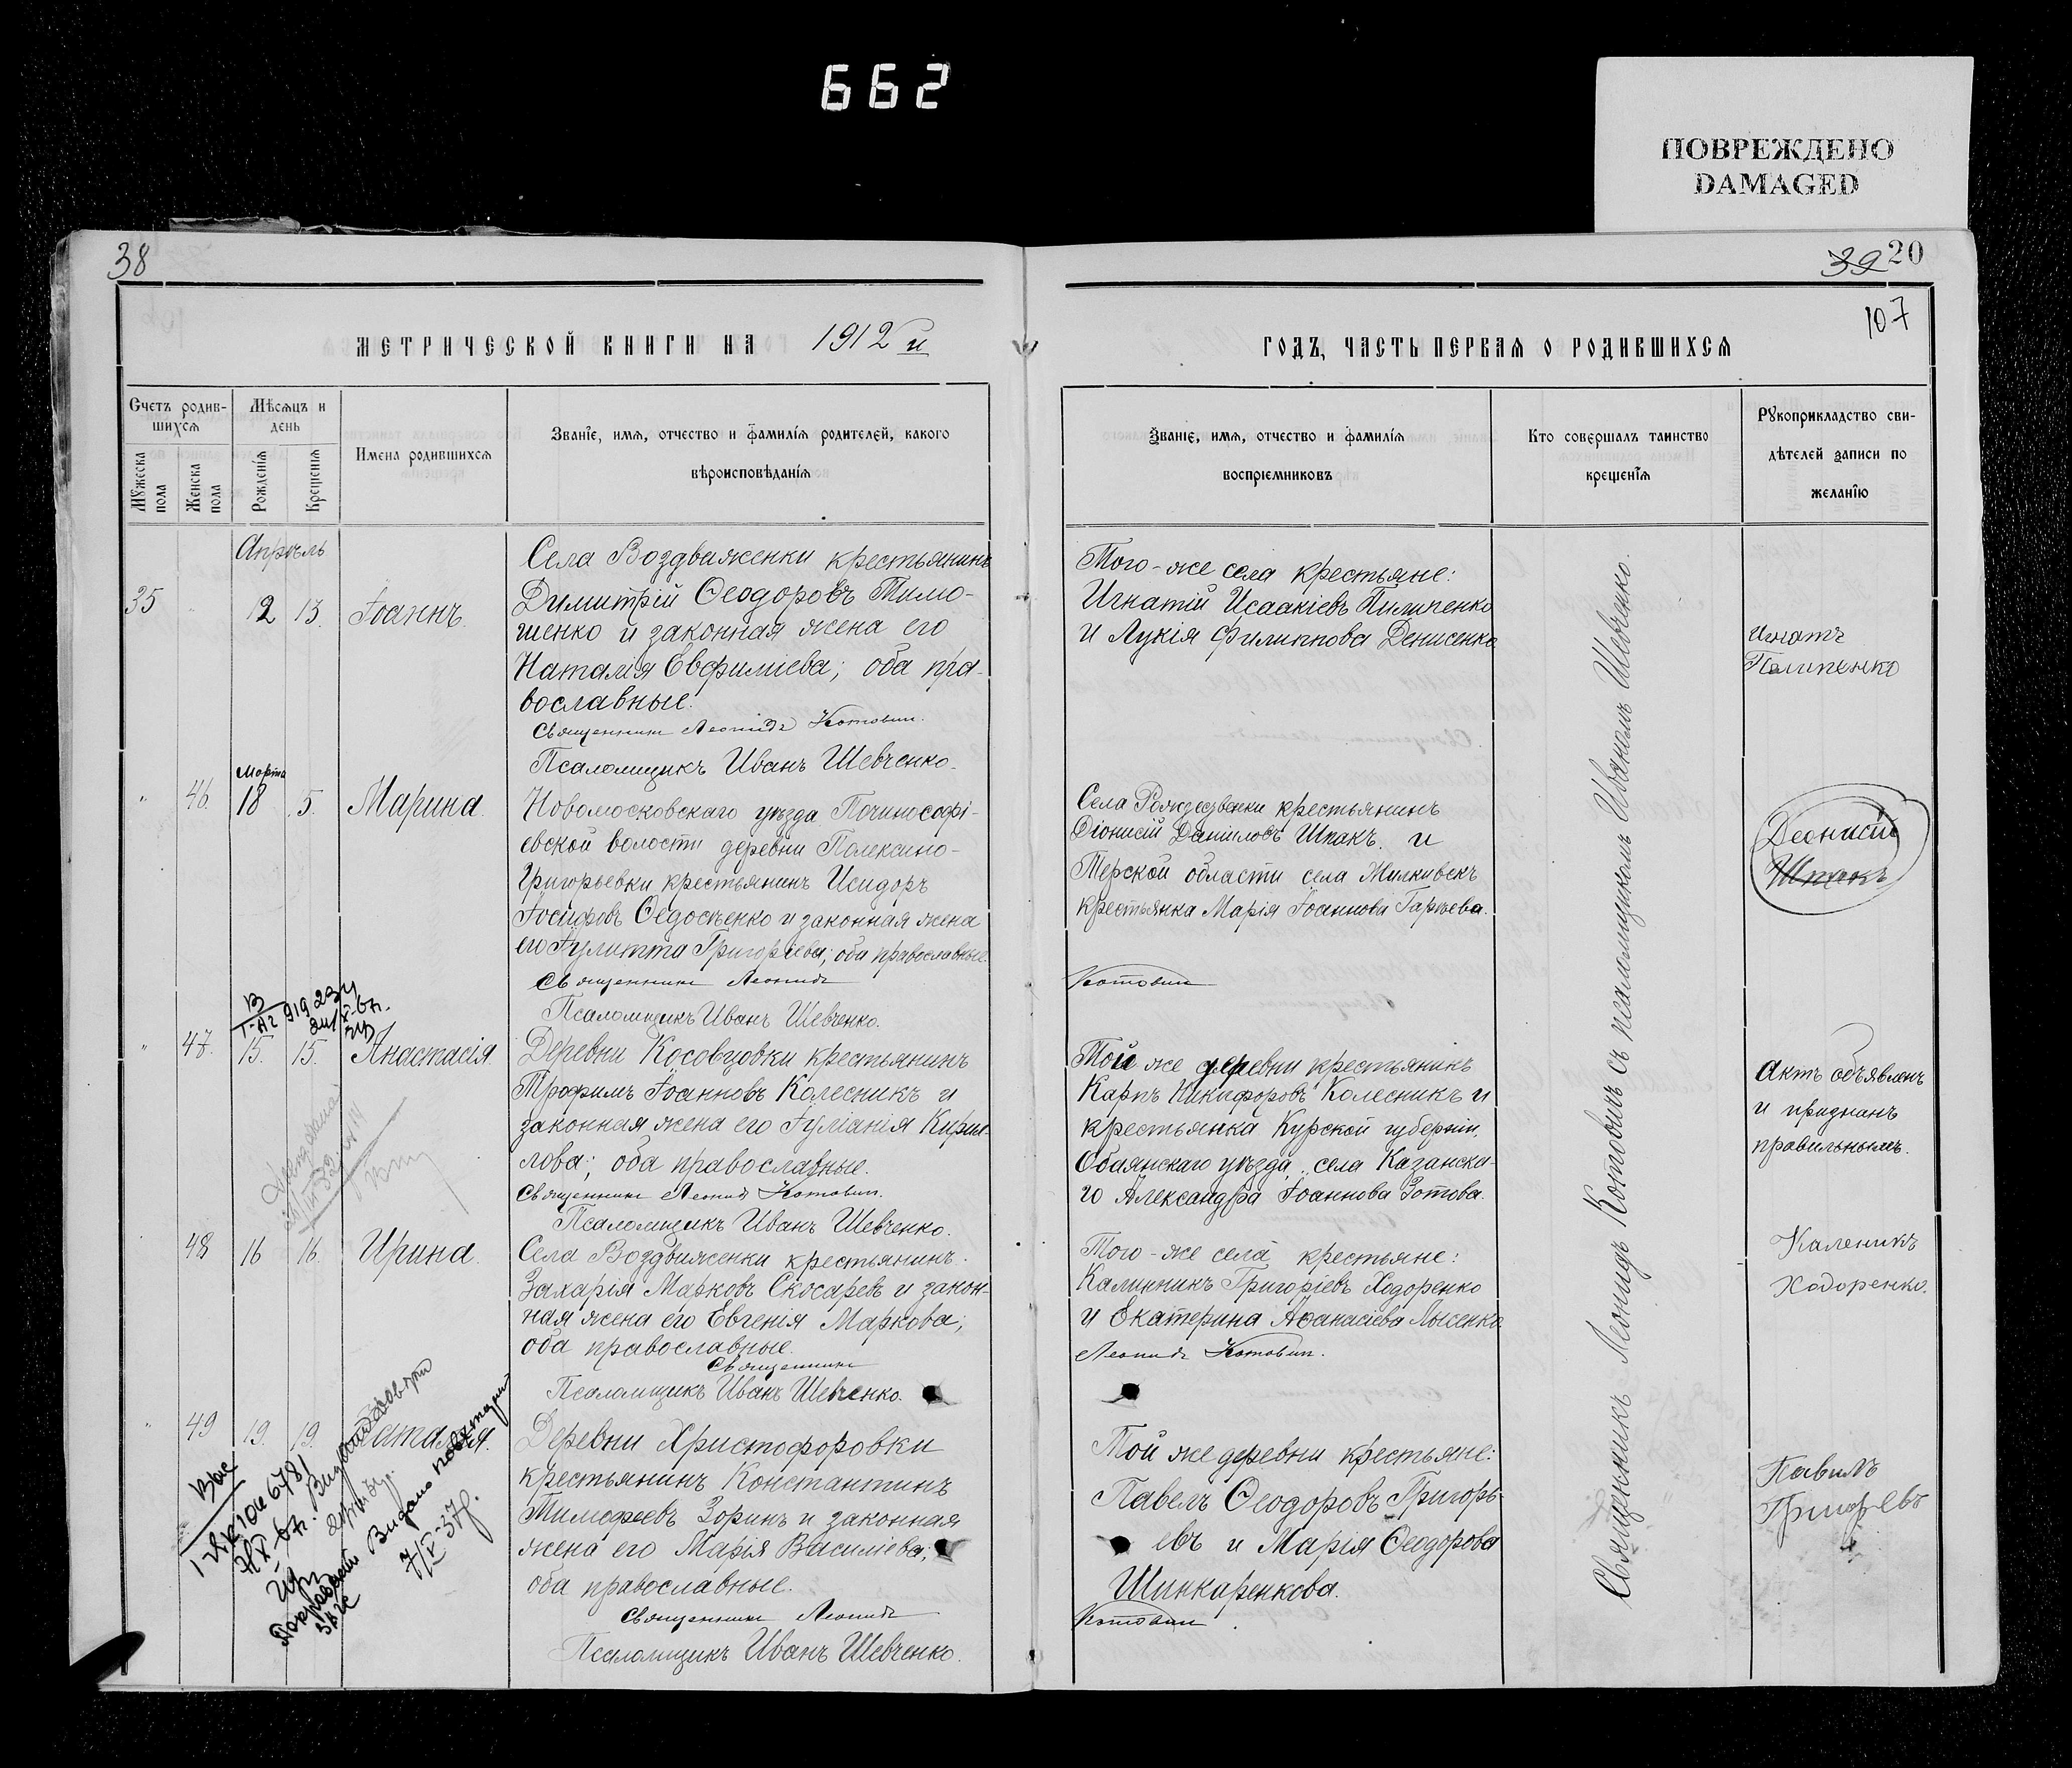 662
ПОВРЕЖДЕНО
DAMAGED
38
39 20
107
МЕТРИЧЕСКОЙ КНИГИ НА 1912 й
ГОДЪ, ЧАСТЬ ПЕРВАЯ О РОДИВШИХСЯ
Счетъ родив-
шихся
Мѣсяцъ и
день
Мужеска
пола
Женска
пола
Рожденія
Крещенія
Имена родившихся
Званіе, имя, отчество и фамилія родителей, какого
вѣроисповѣданія
Званіе, имя, отчество и фамилія
воспріемниковъ
Кто совершалъ таинство
крещенія
Рукоприкладство сви-
дѣтелей записи по
желанію
Апрѣль
35 " 12 13. Іоаннъ.
Села Воздвиженки крестьянинъ
Димитрій Ѳеодоровъ Тимо-
шенко и законная жена его
Наталія Евфиміева; оба пра-
вославные.
Священникъ Леонидъ Котович.
Псаломщикъ Иванъ Шевченко.
Того-же села крестьяне:
Игнатій Исаакіевъ Пилипенко
и Лукія Филиппова Денисенко
Игнатъ
Пилипенко
Марта
" 46. 18 5. Марина.
Новомосковскаго уѣзда Почино-Софі-
евской волости деревни Полексино-
Григорьевки крестьянинъ Исидоръ
Іосифовъ Ѳедосѣенко и законная жена
его Іулитта Григоріева; оба православные.
Священникъ Леонидъ
Псаломщикъ Иванъ Шевченко.
Села Рождественки крестьянинъ
Діонисій Даніиловъ Шпакъ. и
Терской области села
крестьянка Марія Іоаннова
Котович
Деонисій
Шпакъ
" 47. 15. 15. Анастасія.
Деревни Косовцовки крестьянинъ
Трофимъ Іоанновъ Колесникъ и
законная жена его Іуліанія Кирил-
лова; оба православные.
Священникъ Леонидъ Котович.
Псаломщикъ Иванъ Шевченко.
Той же деревни крестьянинъ
Карпъ Никифоровъ Колесникъ и
крестьянка Курской губерніи,
Обаянскаго уѣзда, села Казанска-
го Александра Іоаннова Зотова.
Актъ объявленъ
и признанъ
правильнымъ.
48 16 16. Ирина.
Села Воздвиженки крестьянинъ
Захарія Марковъ Скосаревъ и закон-
ная жена его Евгенія Маркова;
оба православные.
Священникъ
Псаломщикъ Иванъ Шевченко.
Того-же села крестьяне:
Калинникъ Григоріевъ Ходоренко
и Екатерина Аѳанасіева Лысенко
Леонидъ Котович.
Каленикъ
Ходоренко.
" 49 19. 19. Наталія.
Деревни Христофоровки
крестьянинъ Константинъ
Тимофеевъ Зоринъ и законная
жена его Марія Василіева;
оба православные.
Священникъ Леонидъ
Псаломщикъ Иванъ Шевченко.
Той же деревни крестьяне:
Павелъ Ѳеодоровъ Григорь-
евъ и Марія Ѳеодорова
Шинкаренкова.
Котович
Павилъ
Григорев
Священникъ Леонидъ Котовичъ съ псаломщикомъ Иваномъ Шевченко.